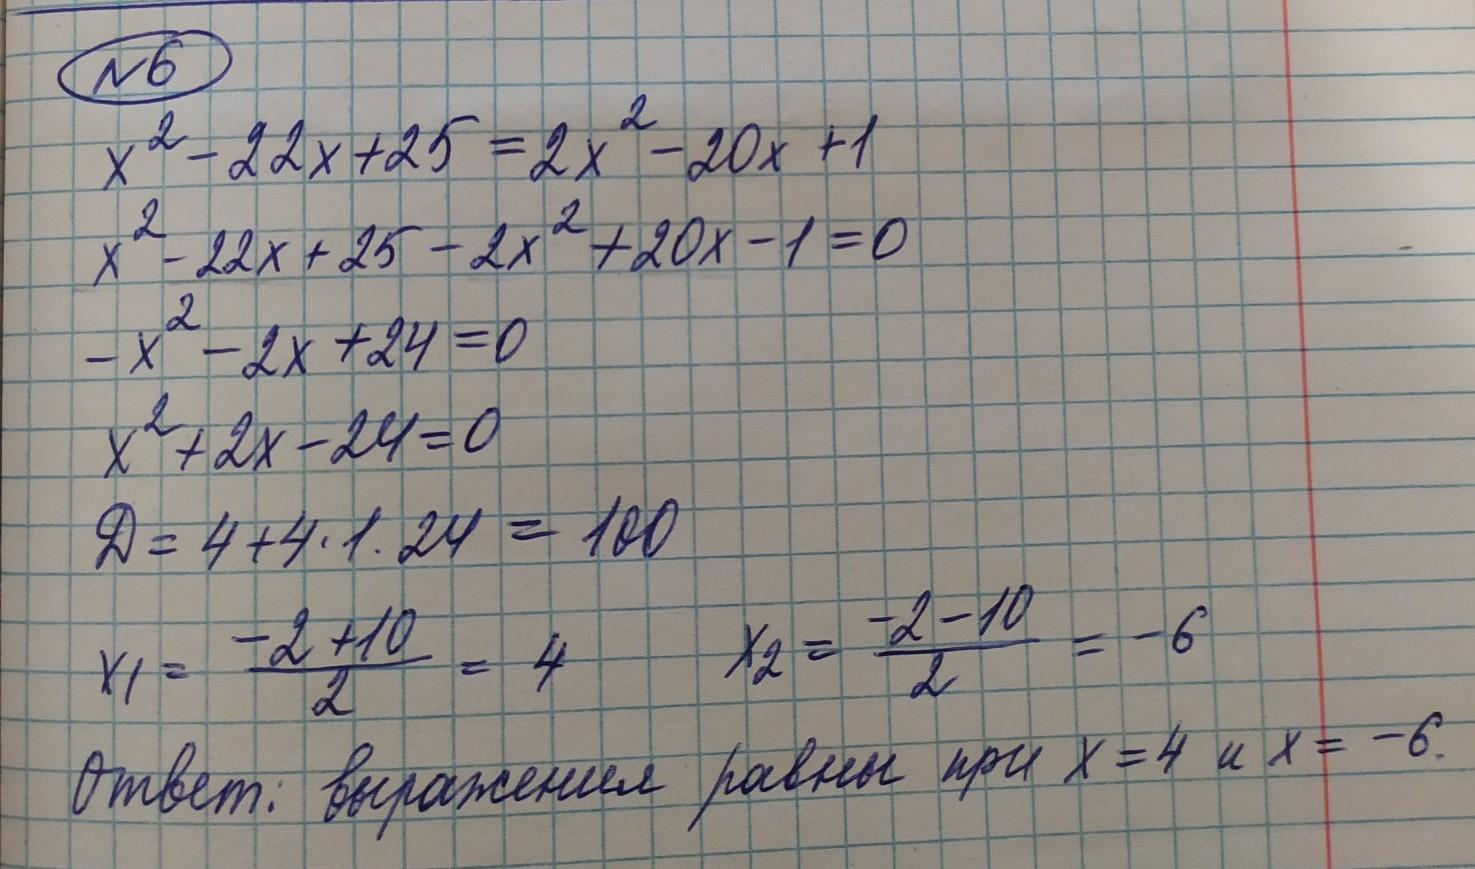 №6
x² - 22x + 25 = 2x² - 20x + 1
x² - 22x + 25 - 2x² + 20x - 1 = 0
-x² - 2x + 24 = 0
x² + 2x - 24 = 0
Д = 4 + 4·1·24 = 100
x₁ = (-2 + 10)/2 = 4   x₂ = (-2 - 10)/2 = -6
Ответ: выражения равны при x = 4 и x = -6.